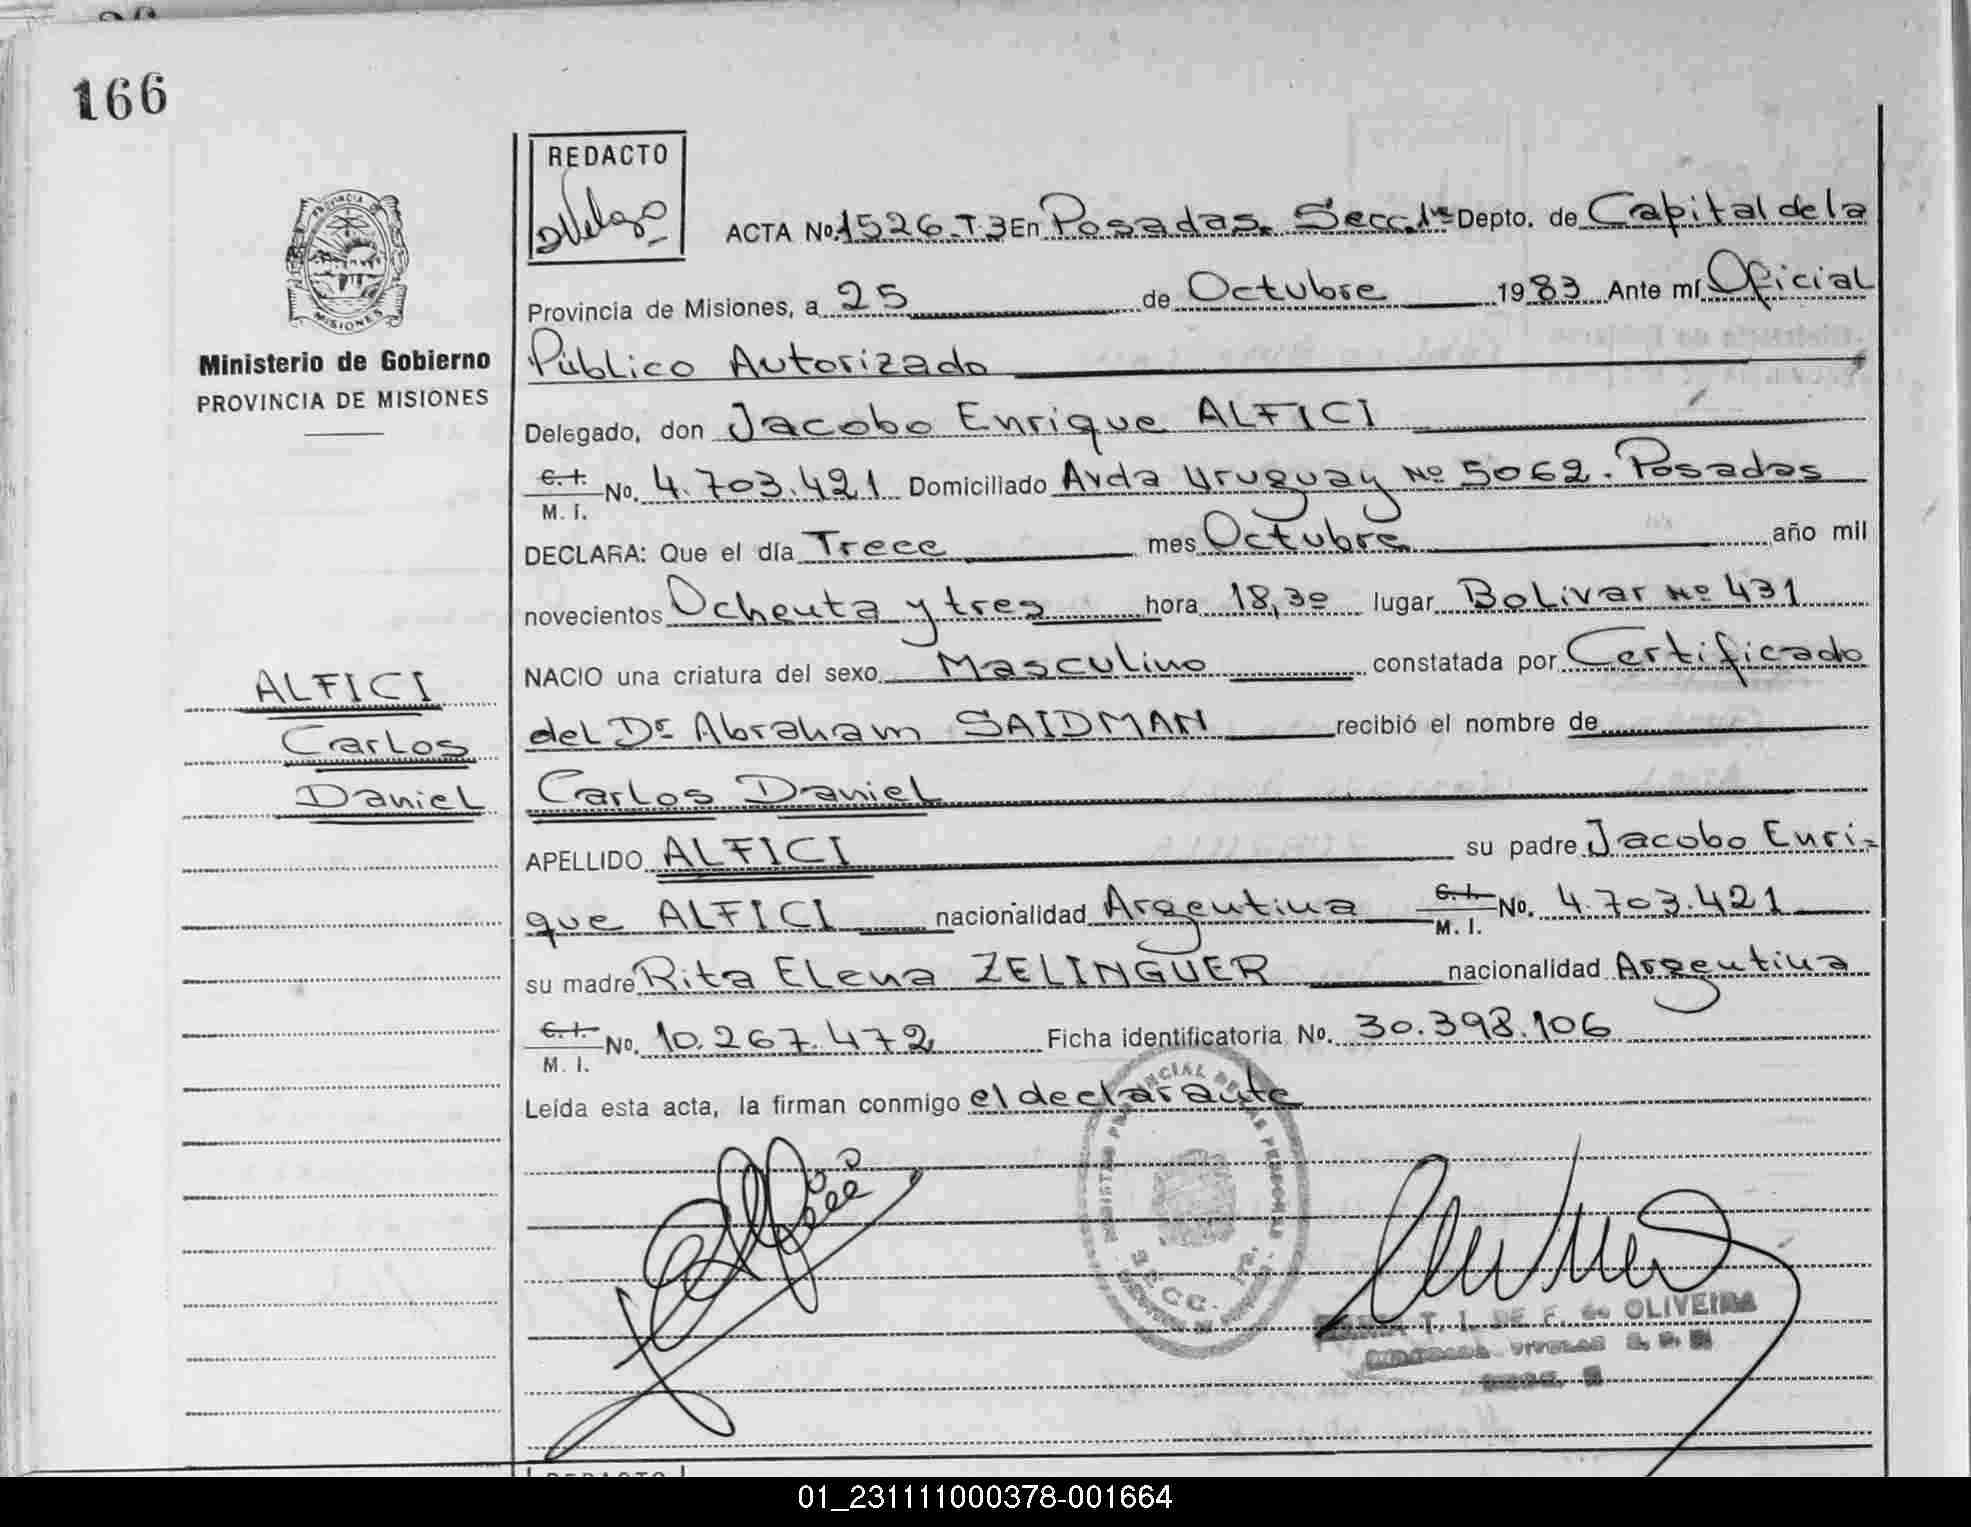 166
REDACTO
ACTA No. 1526-T.3 En Posadas. Secc. 1ra Depto. de Capital de la
Provincia de Misiones, a 25 de Octubre 1983 Ante mí Oficial
Público Autorizado
Delegado, don Jacobo Enrique ALFICI
C. I.
M. I.
No. 4.703.421 Domiciliado Avda Uruguay No 5062. Posadas
DECLARA: Que el día Trece mes Octubre año mil
novecientos Ochenta y tres hora 18,30 lugar Bolivar No 431
NACIO una criatura del sexo Masculino constatada por Certificado
del Dr Abraham SAIDMAN recibió el nombre de
Carlos Daniel
APELLIDO ALFICI su padre Jacobo Enri-
que ALFICI nacionalidad Argentina C. I. No. 4.703.421
M. I.
su madre Rita Elena ZELINGUER nacionalidad Argentina
C. I.
M. I.
No. 10.267.472 Ficha identificatoria No. 30.398.106
Leída esta acta, la firman conmigo el declarante
PROVINCIA DE
MISIONES
Ministerio de Gobierno
PROVINCIA DE MISIONES
ALFICI
Carlos
Daniel
T. I. DE F. de OLIVEIRA
REDACTO
01_231111000378-001664